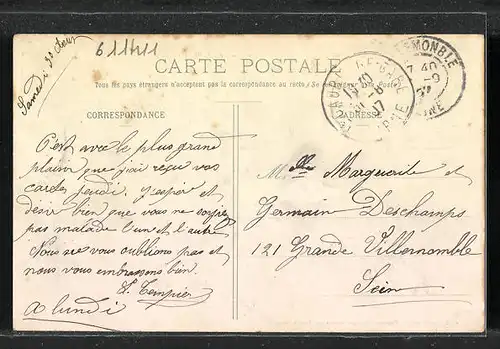 611411
Samedi
CARTE POSTALE
Tous les pays étrangers n'acceptent pas la correspondance au recto
CORRESPONDANCE
ADRESSE
C'est avec le plus grand
plaisir que j'ai reçu vos
cartes jeudi. J'espère et
désire bien que vous ne soyez
pas malade l'un et l'autre
Nous ne vous oublions pas et
nous vous embrassons bien
A lundi
Marguerite et
Germain Deschamps
121 Grande Villemomble
Seine